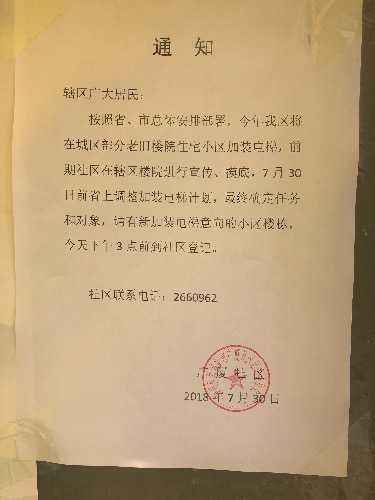 通知
辖区广大居民：
按照省、市总体安排部署，今年我区将
在城区部分老旧楼院住宅小区加装电梯，前
期社区在辖区楼院进行宣传、摸底，7月30
日前省上调整加装电梯计划，最终确定任务
和对象，请有新加装电梯意向的小区楼栋，
今天下午3点前到社区登记。
社区联系电话：2660962
社区
2018年7月30日